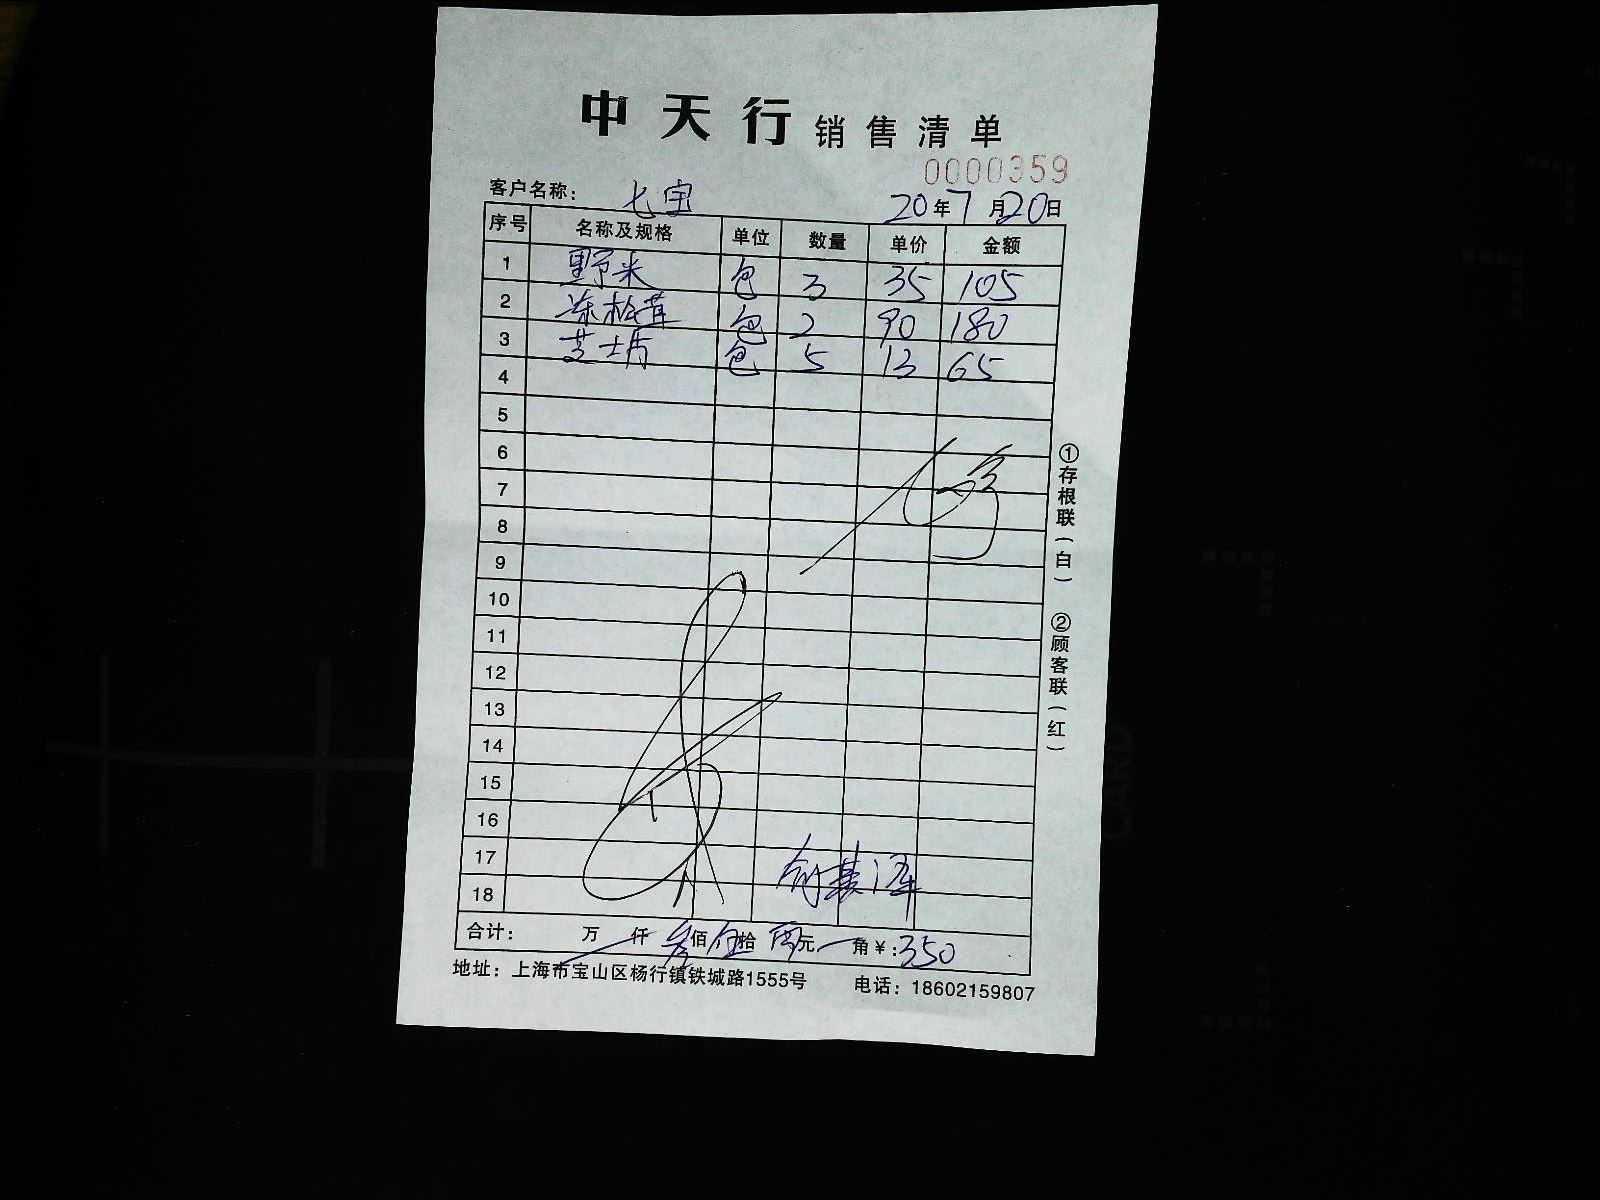 中天行 销售清单
0000359
客户名称: 七宝 20年7月20日
序号 名称及规格 单位 数量 单价 金额
1 野米 包 3 35 105
2 冻松茸 包 2 90 180
3 芝士片 包 5 13 65
4
5
6
7
8
9
10
11
12
13
14
15
16
17
18
合计: 万 仟 叁佰伍拾 元 角¥:350
地址:上海市宝山区杨行镇铁城路1555号 电话:18602159807
①存根联(白) ②顾客联(红)
CARD